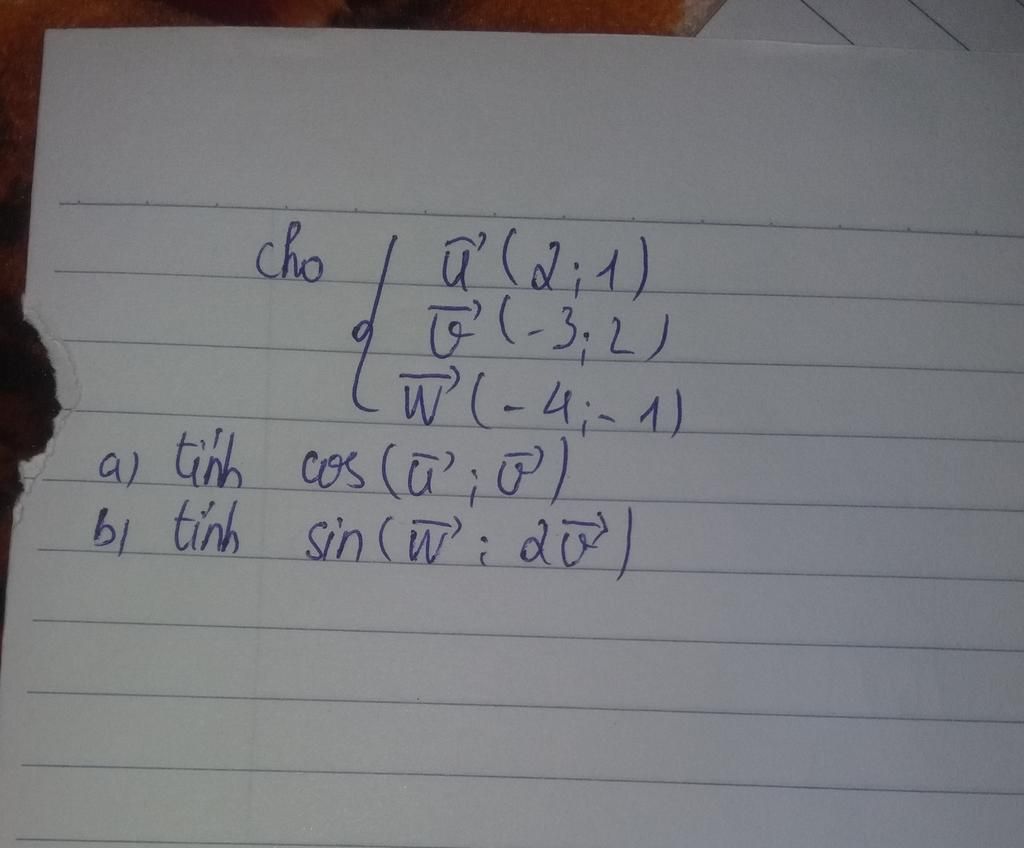 cho { u⃗ (2;1)
v⃗ (-3;2)
w⃗ (-4;-1)
a) tính cos(u⃗ ; v⃗)
b) tính sin(w⃗ ; 2v⃗)